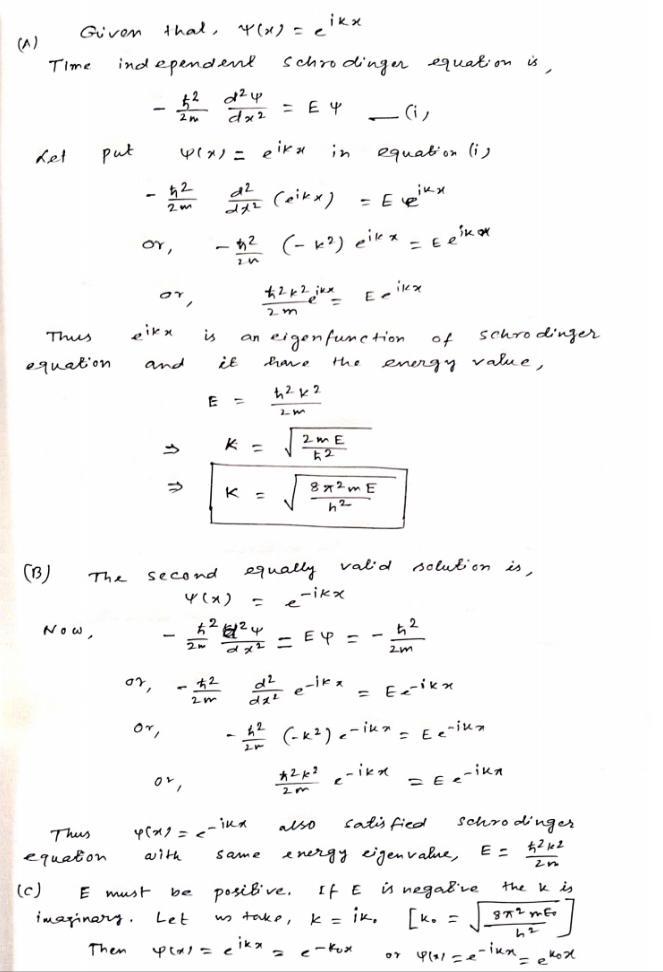 (A) Given that, Ψ(x) = e^{ikx}
Time independent schrodinger equation is,
- ħ²/2m d²Ψ/dx² = E Ψ — (i)
Let put Ψ(x) = e^{ikx} in equation (i)
- ħ²/2m d²/dx² (e^{ikx}) = E e^{ikx}
or, - ħ²/2m (- k²) e^{ikx} = E e^{ikx}
or, ħ²k²/2m e^{ikx} = E e^{ikx}
Thus e^{ikx} is an eigenfunction of schrodinger
equation and it have the energy value,
E = ħ²k²/2m
⇒ K = √(2mE/ħ²)
⇒ K = √(8π²mE/h²)
(B) The second equally valid solution is,
Ψ(x) = e^{-ikx}
Now, - ħ²/2m d²Ψ/dx² = EΨ = - ħ²/2m
or, - ħ²/2m d²/dx² e^{-ikx} = E e^{-ikx}
Or, - ħ²/2m (-k²) e^{-ikx} = E e^{-ikx}
or, ħ²k²/2m e^{-ikx} = E e^{-ikx}
Thus Ψ(x) = e^{-ikx} also satisfied schrodinger
equation with same energy eigenvalue, E = ħ²k²/2m
(C) E must be positive. If E is negative the k is
imaginary. Let us take, k = ik₀ [k₀ = √(8π²mE₀/h²)]
Then Ψ(x) = e^{ikx} = e^{-k₀x} or Ψ(x) = e^{-ikx} = e^{k₀x}